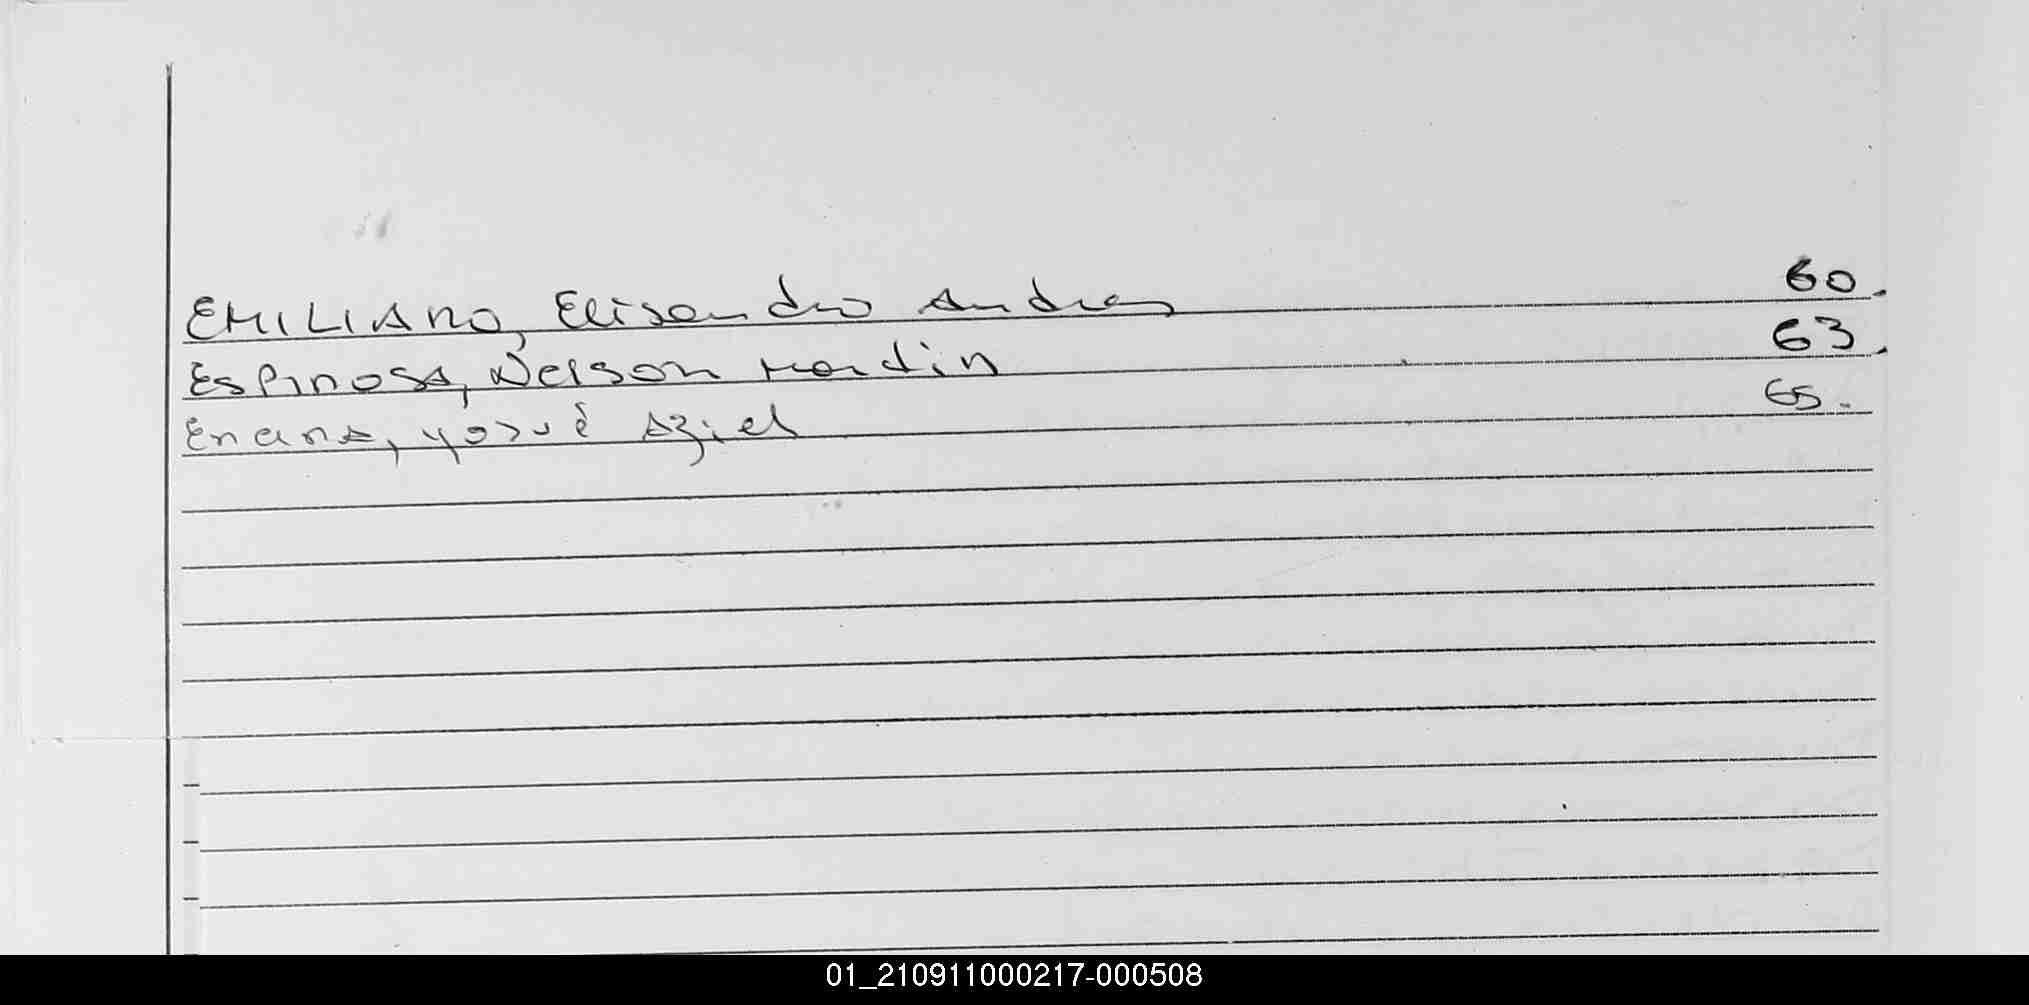 EMILIANO, Elisandro Andres 60.
ESPINOSA, Nelson Martin 63.
Enana, yosué Aziel 65.
01_210911000217-000508